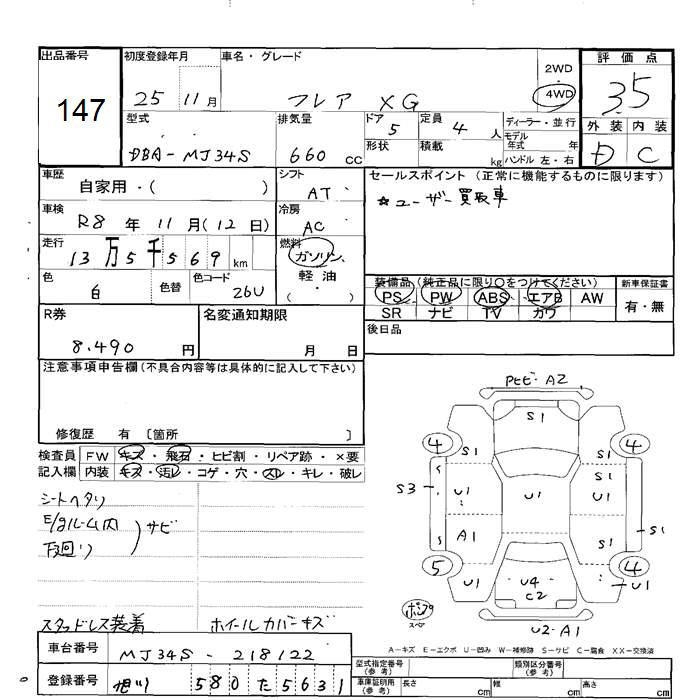 出品番号 初度登録年月 車名・グレード 評価点
147 25 11月 フレア XG 2WD 4WD 3.5
型式 排気量 ドア 5 定員 4 人 ディーラー・並行 外装 内装
DBA-MJ34S 660 CC 形状 積載 kg モデル年式 年 ハンドル 左・右 D C
車歴 自家用・( ) シフト AT セールスポイント (正常に機能するものに限ります)
車検 R8 年 11 月(12 日) 冷房 AC ☆ユーザー買取車
走行 13万5千569 km 燃料 ガソリン 軽油 ( )
色 白 色替 色コード 26U 装備品(純正品に限り○をつけてください) 新車保証書
PS PW ABS エアB AW 有・無
SR ナビ TV カワ
R券 8.490 円 名変通知期限 月 日 後日品
注意事項申告欄(不具合内容等は具体的に記入して下さい)
修復歴 有 〔箇所 〕
検査員記入欄 FW キズ・飛石・ヒビ割・リペア跡・×要
内装 キズ・汚レ・コゲ・穴・スレ・キレ・破レ
シートヘタリ
E/gルーム内 サビ
下回り
スタッドレス装着 ホイールカバーキズ
A2
S1
4 4
S1 S1
S3 U1 U1 U1
S1
A1 S1
5 4
U1 U4 U1
C2
スペア
U2-A1
A-キズ E-エクボ U-凹み W-補修跡 S-サビ C-腐食 XX-交換済
車台番号 MJ34S-218122
登録番号 580 た 5631
型式指定番号(参考) 類別区分番号(参考)
車庫証明用(参考) 長さ cm 幅 cm 高さ cm